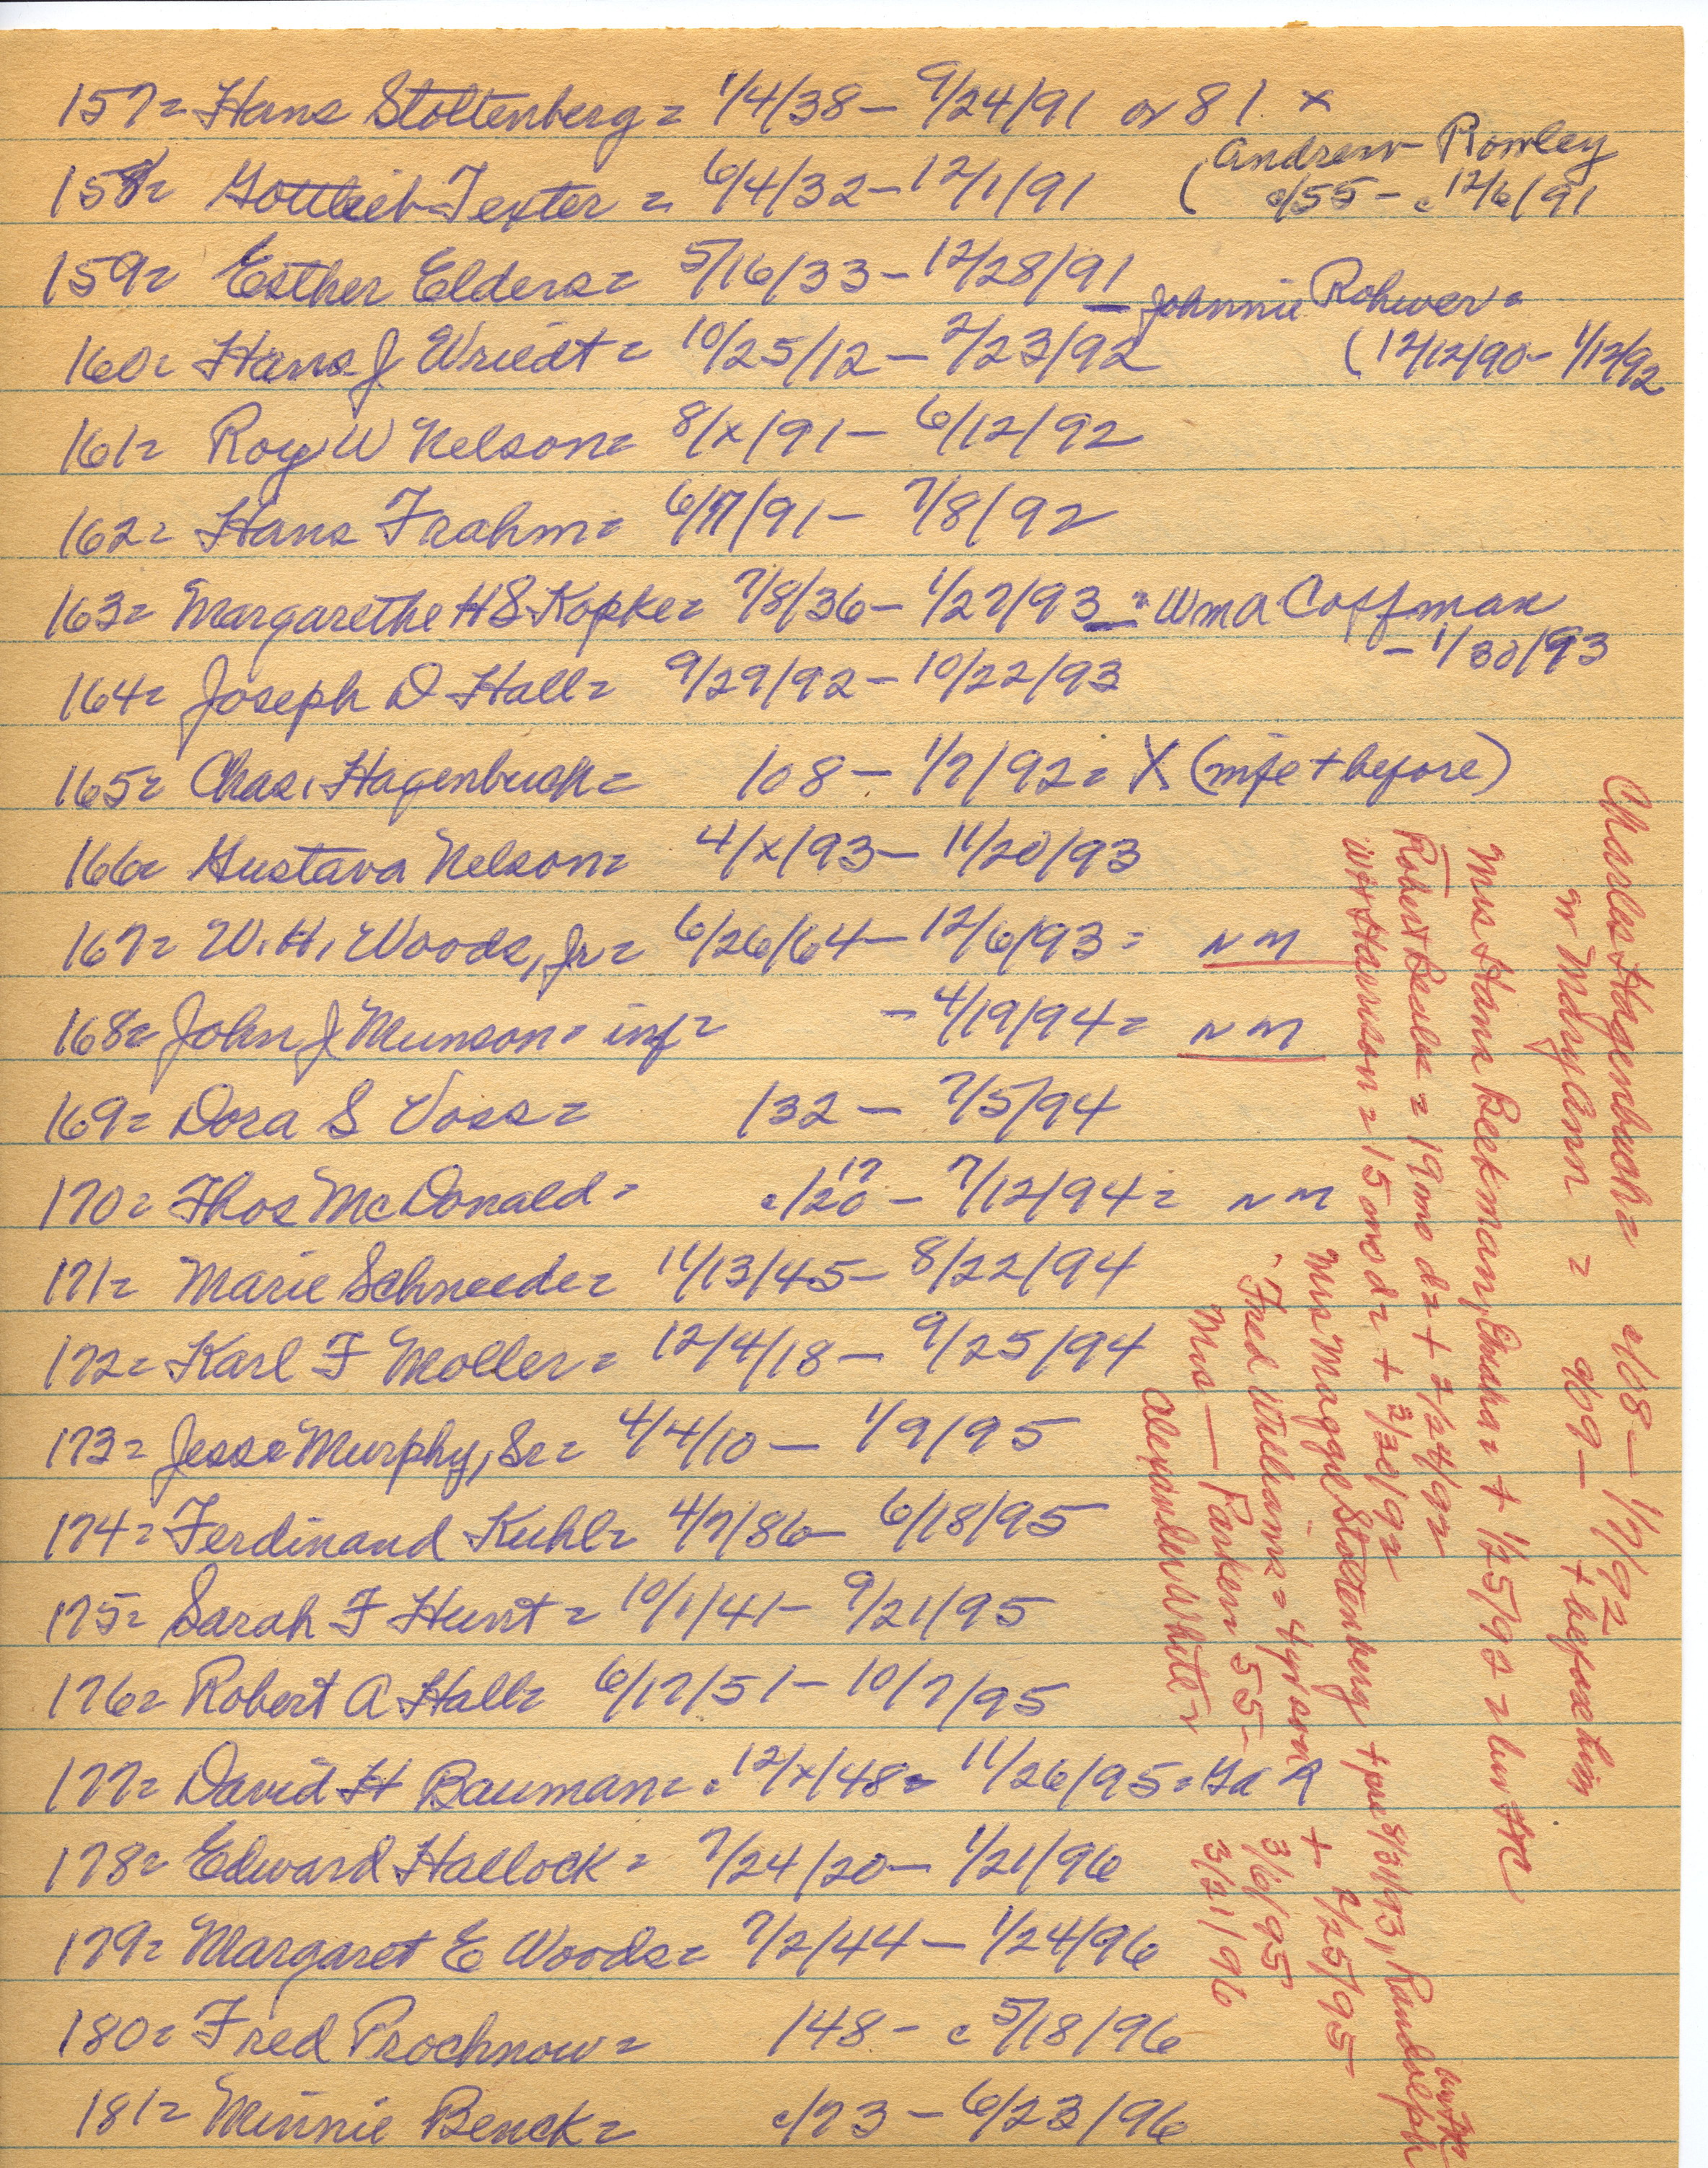 157= Hans Stoltenberg = 1/4/38 — 9/24/91 or 81 x
(Andrew Rowley
c/55 — c 12/6/91
158= Gottlieb Texter = 6/4/32 — 12/1/91
159= Esther Elders = 5/16/33 — 12/28/91
— Johnnie Rohwer =
(12/12/90 — 1/12/92
160= Hans J Wriedt = 10/25/12 — 2/23/92
161= Roy W Nelson = 8/x/91 — 6/12/92
162= Hans Frahm = 6/17/91 — 7/8/92
163= Margarethe H S Kopke = 7/8/36 — 1/27/93 = Wm A Coffman
— 1/30/93
164= Joseph D Hall = 9/29/92 — 10/22/93
165= Chas. Hagenbuch = 108 — 1/7/92 = X (mfe + before)
166= Gustava Nelson = 4/x/93 — 11/20/93
167= W. H. Woods, Jr = 6/26/64 — 12/6/93 = NM
168= John J Munson = inf = — 4/19/94 = NM
169= Dora S Voss = 132 — 7/5/94
170= Thos McDonald = c/20 17 — 7/12/94 = NM
171= Marie Schneede = 11/13/45 — 8/22/94
172= Karl F Moller = 12/4/18 — 9/25/94
173= Jesse Murphy, Sr = 4/4/10 — 1/9/95
174= Ferdinand Kuhl = 4/7/86 — 6/18/95
175= Sarah F Hunt = 10/1/41 — 9/21/95
176= Robert A Hall = 6/17/51 — 10/7/95
177= David H Bauman = c 12/x/48 = 11/26/95 = Ga R
178= Edward Hallock = 7/24/20 — 1/21/96
179= Margaret E Woods = 7/2/44 — 1/24/96
180= Fred Prochnow = 148 — c 5/18/96
181= Minnie Benck = c/73 — 6/23/96
Charles Hagenbuch = c/08 — 1/7/92
or Mary Ann = c/09 — + before him
Mrs Hans Beekman, Omaha = + 1/25/92 =
Robert Beals = 19 mo d = + 2/24/92
Harrison = 15 mo d = + 3/30/92
Mrs Maggie Stoltenberg + pre 8/31/93, Randolph
Fred Williams = 4 yr son + 2/25/95
Mrs — Parker 55 — 3/6/95
Alexander White = 3/21/96